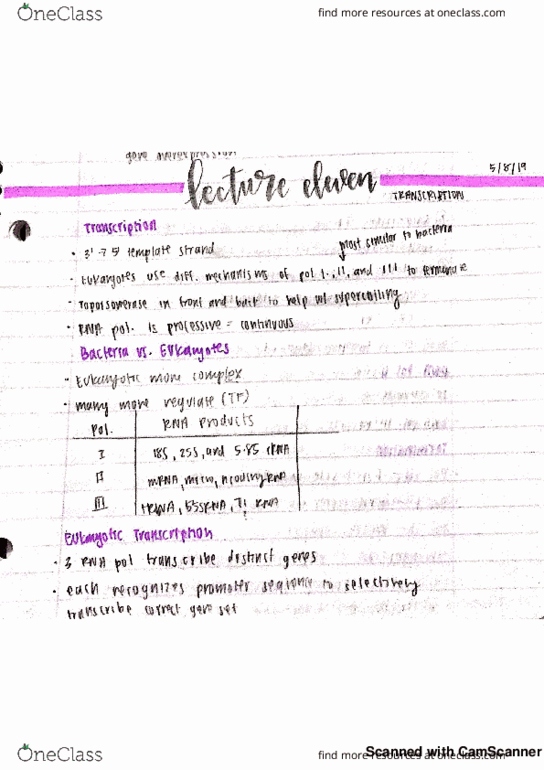 OneClass
find more resources at oneclass.com
5/8/19
lecture eleven
TRANSCRIPTION
Transcription
most similar to bacteria
• 3' → 5' template strand
• Eukaryotes use diff. mechanisms of pol I, II, and III to terminate
• in front and back to help w/ supercoiling
• RNA pol. is processive = continuous
Bacteria vs. Eukaryotes
• Eukaryotic more complex
• many more regulate (TF)
Pol. RNA Products
I 18S, 25S, and 5.8S rRNA
II mRNA, micro, RNA
III tRNA, RNA
Eukaryotic Transcription
• 3 RNA pol transcribe distinct genes
• each recognizes promoter sequence to selectively
transcribe correct gene set
OneClass
find more resources at oneclass.com
Scanned with CamScanner